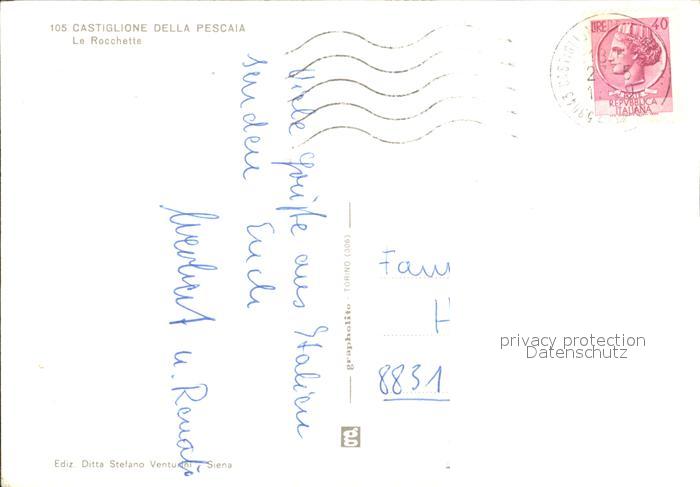 105 CASTIGLIONE DELLA PESCAIA
Le Rocchette
LIRE 40
REPVBBLICA
ITALIANA
Viele Grüße aus Italien
senden Euch
u. Renate
grapholito - TORINO (306)
Fam
H
8831
privacy protection
Datenschutz
g
Ediz. Ditta Stefano Venturini - Siena